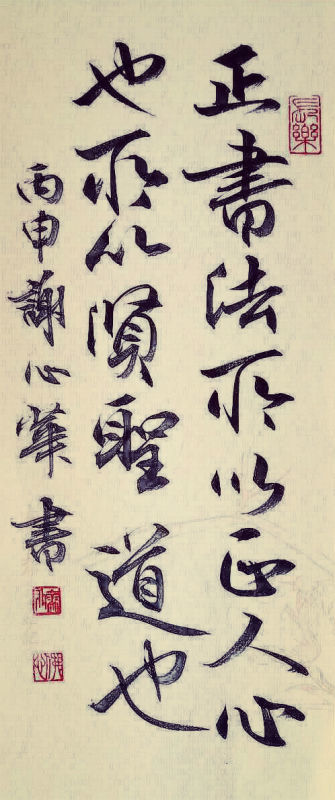 長樂
正書法所以正人心
也所以賢聖道也
丙申謝心華書